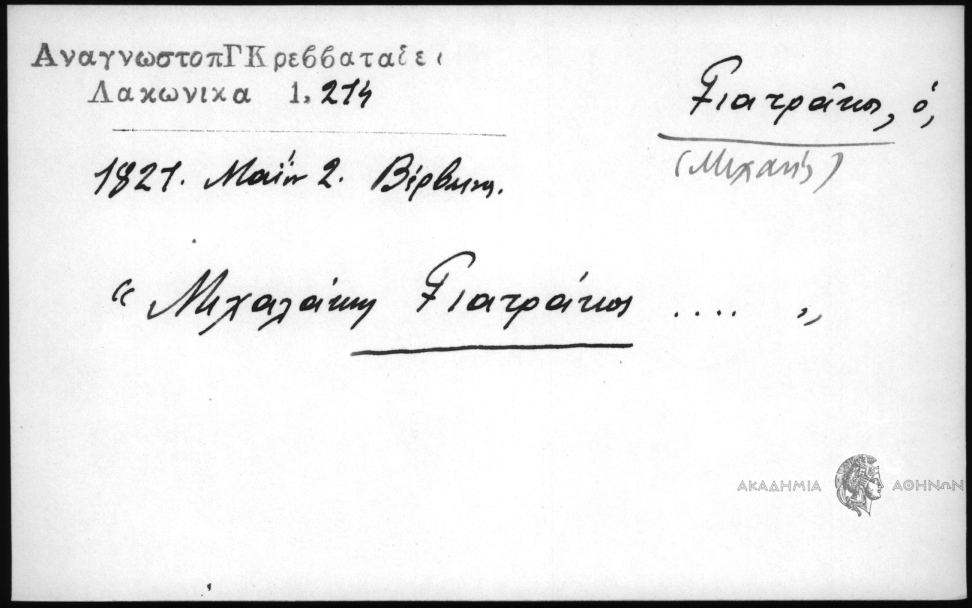 ΑναγνωστοπΓΚρεββαταδει
Λακωνικα 1, 214
Γιατράκος, ὁ,
(Μιχαήλ)
1821. Μαΐου 2. Βέρβενα.
“ Μιχαλάκης Γιατράκος .... „
ΑΚΑΔΗΜΙΑ ΑΘΗΝΩΝ